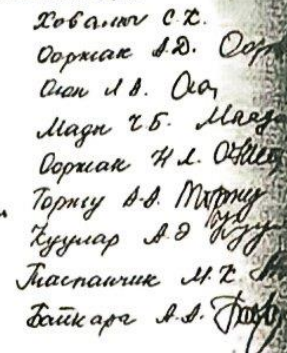 Ховалыг С.Х.
Ооржак А.Д. Оор
Оюн Л.В.
Мады Ч.Б. Мады
Ооржак Н.Л.
Торжу А.А. Торжу
Куулар А.Э Куу
Таспанчик М.Х
Байкара А.А.